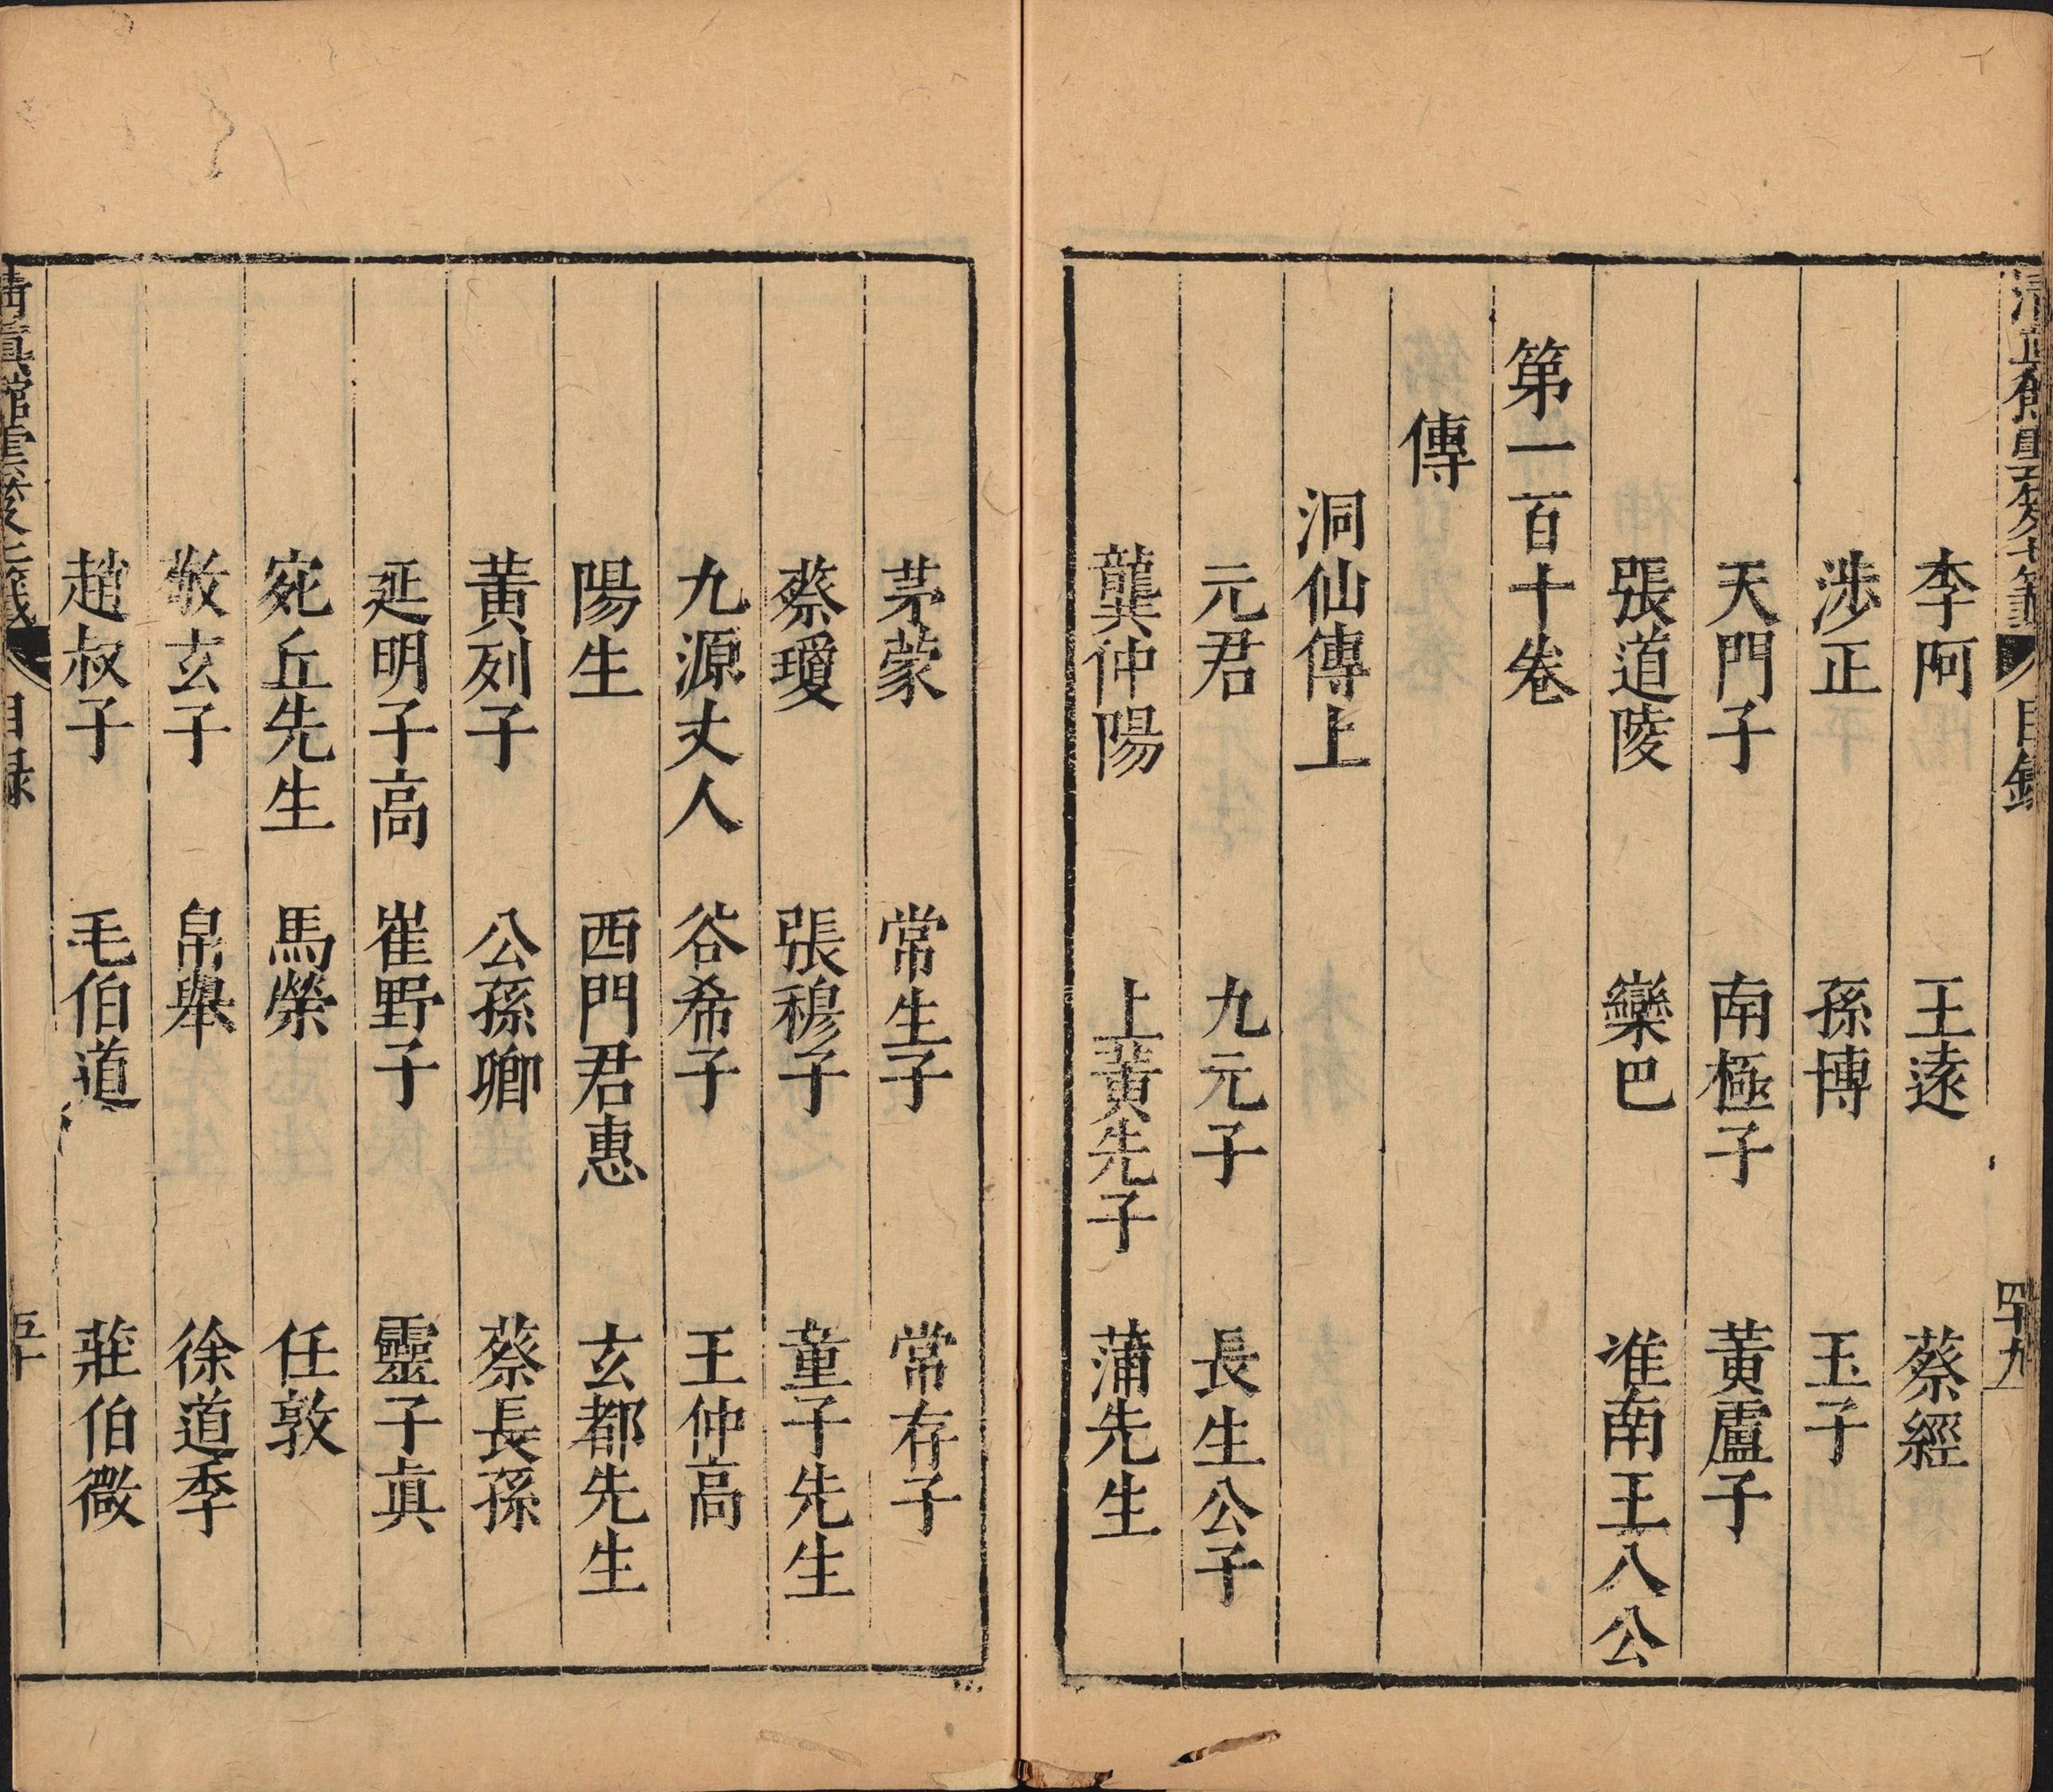 李阿　王遠　蔡經
涉正　孫博　玉子
天門子　南極子　黃盧子
張道陵　欒巴　淮南王八公
第一百十卷
傳
洞仙傳上
元君　九元子　長生公子
龔仲陽　上黃先子　蒲先生
茅濛　常生子　常存子
蔡瓊　張穆子　童子先生
九源丈人　谷希子　王仲高
陽生　西門君惠　玄都先生
黃列子　公孫卿　蔡長孫
延明子高　崔野子　靈子真
宛丘先生　馬榮　任敦
敬玄子　帛舉　徐道季
趙叔子　毛伯道　莊伯微
清真館雲笈七籤　目録　五十